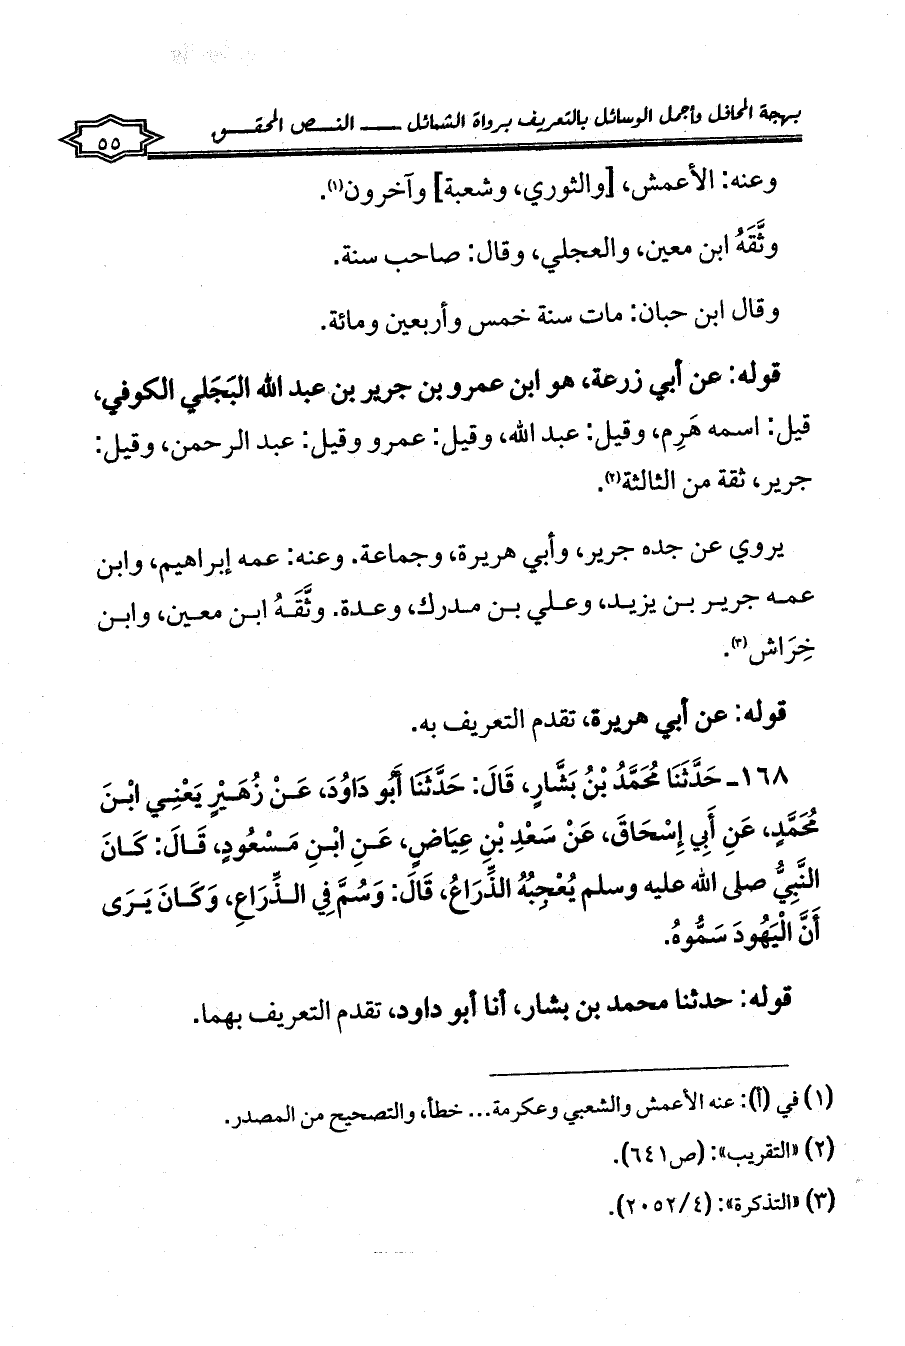 بهجة المحافل وأجمل الوسائل بالتعريف برواة الشمائل ــــ النــص المحقــق
٥٥
وعنه: الأعمش، [والثوري، وشعبة] وآخرون(١).
وثَّقَهُ ابن معين، والعجلي، وقال: صاحب سنة.
وقال ابن حبان: مات سنة خمس وأربعين ومائة.
قوله: عن أبي زرعة، هو ابن عمرو بن جرير بن عبد الله البَجَلي الكوفي،
قيل: اسمه هَرِم، وقيل: عبد الله، وقيل: عمرو وقيل: عبد الرحمن، وقيل:
جرير، ثقة من الثالثة(٢).
يروي عن جده جرير، وأبي هريرة، وجماعة. وعنه: عمه إبراهيم، وابن
عمـه جرير بـن يزيـد، وعـلي بـن مدرك، وعـدة. وثَّقَـهُ ابـن معـين، وابـن
خِرَاش(٣).
قوله: عن أبي هريرة، تقدم التعريف به.
١٦٨ـ حَدَّثَنَا مُحَمَّدُ بْنُ بَشَّارٍ، قَالَ: حَدَّثَنَا أَبُو دَاوُدَ، عَـنْ زُهَـيْرٍ يَعْنِـي ابْـنَ
مُحَمَّدٍ، عَنِ أَبِي إِسْحَاقَ، عَنْ سَعْدِ بْنِ عِيَاضٍ، عَـنِ ابْـنِ مَـسْعُودٍ، قَـالَ: كَـانَ
النَّبِيُّ صلى الله عليه وسلم يُعْجِبُهُ الذِّرَاعُ، قَالَ: وَسُمَّ فِي الـذِّرَاعِ، وَكَـانَ يَـرَى
أَنَّ الْيَهُودَ سَمُّوهُ.
قوله: حدثنا محمد بن بشار، أنا أبو داود، تقدم التعريف بهما.
(١) في (أ): عنه الأعمش والشعبي وعكرمة... خطأ، والتصحيح من المصدر.
(٢) «التقريب»: (ص٦٤١).
(٣) «التذكرة»: (٤/ ٢٠٥٢).